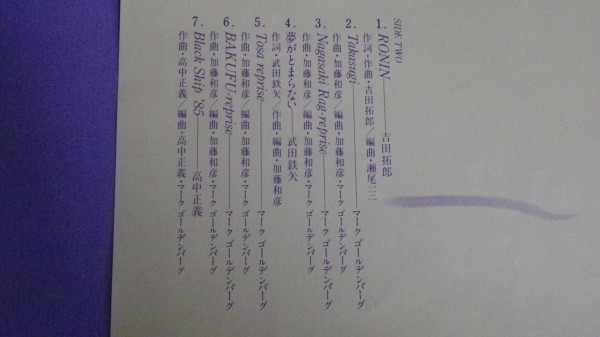 SIDE TWO
1. RONIN――――吉田拓郎
作詞・作曲・吉田拓郎／編曲・瀬尾一三
2. Takasugi――――マーク ゴールデンバーグ
作曲・加藤和彦／編曲・加藤和彦・マーク ゴールデンバーグ
3. Nagasaki Rag-reprise――――マーク ゴールデンバーグ
作曲・加藤和彦／編曲・加藤和彦・マーク ゴールデンバーグ
4. 夢がとまらない――――武田鉄矢
作詞・武田鉄矢／作曲・編曲・加藤和彦
5. Tosa reprise――――マーク ゴールデンバーグ
作曲・加藤和彦／編曲・加藤和彦・マーク ゴールデンバーグ
6. BAKUFU-reprise――――マーク ゴールデンバーグ
作曲・加藤和彦／編曲・加藤和彦・マーク ゴールデンバーグ
7. Black Ship '85――――高中正義
作曲・高中正義／編曲・高中正義・マーク ゴールデンバーグ